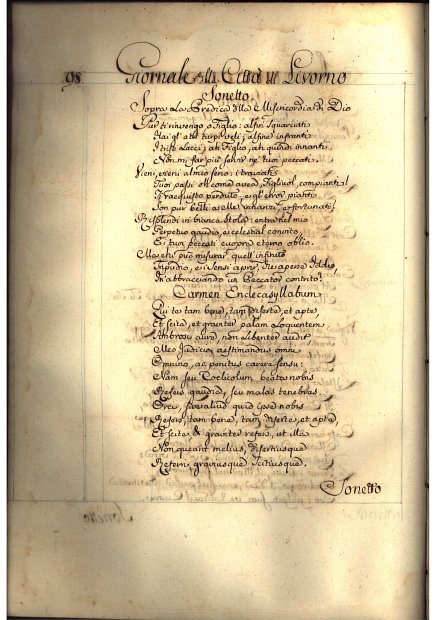 98 Giornale della Città di Livorno
Sonetto.
Sopra La Predica della Misericordia di Dio
Pur ti rinvengo ò Figlio: alfin squarciati
Hai gl' atri turpi veli; alfine infranti
I tristi Lacci; ah Figlio, ah quindi innanti
Non mi far più sentir ne' tuoi peccati.
Vieni, vieni al mio seno: i traviati
Tuoi passi oh come avea, Figliuol, compianti!
Ti racquisto perduto, e gl' error pianti
Son pur belli
Risplendi in bianca stola: entra nel mio
Perpetuo gaudio, e celestial convito,
E i tuoi peccati eterno oblio.
Ma chi può misurar quell' infinito
Tripudio, e i sensi aprir, che sapere Iddio,
In abbracciando un Peccator contrito?
Carmen Endecasyllabum
Qui te tam bene, tam diserte, et apte,
Et scite, et graviter palam Loquentem
Ambrosi aure, non libenter audit,
Meo Judicio, aestimandus omni
Omnino, ac penitus carere sensu:
Nam seu Coelicolum beata nobis
Refers gaudia, seu malas tenebras
Orci, sive aliud quid ipse nobis
Refers, tam bene, tam diserte, et apte,
Et scite & graviter refers, ut illa
Non queant melius, disertiusque
Referri, graviusque scitiusque.
Sonetto